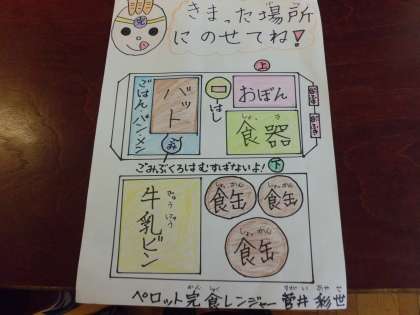 完
きまった場所
にのせてね!
上
ごはん・パン・メン
バット
はし
おぼん
しょっき
食器
み
ごみぶくろはむすばないよ!
下
ぎゅうにゅう
牛乳ビン
しょっかん
食缶
しょっかん
食缶
しょっかん
食缶
かんしょく
ペロット完食レンジャー
すがい あやせ
菅井 彩世